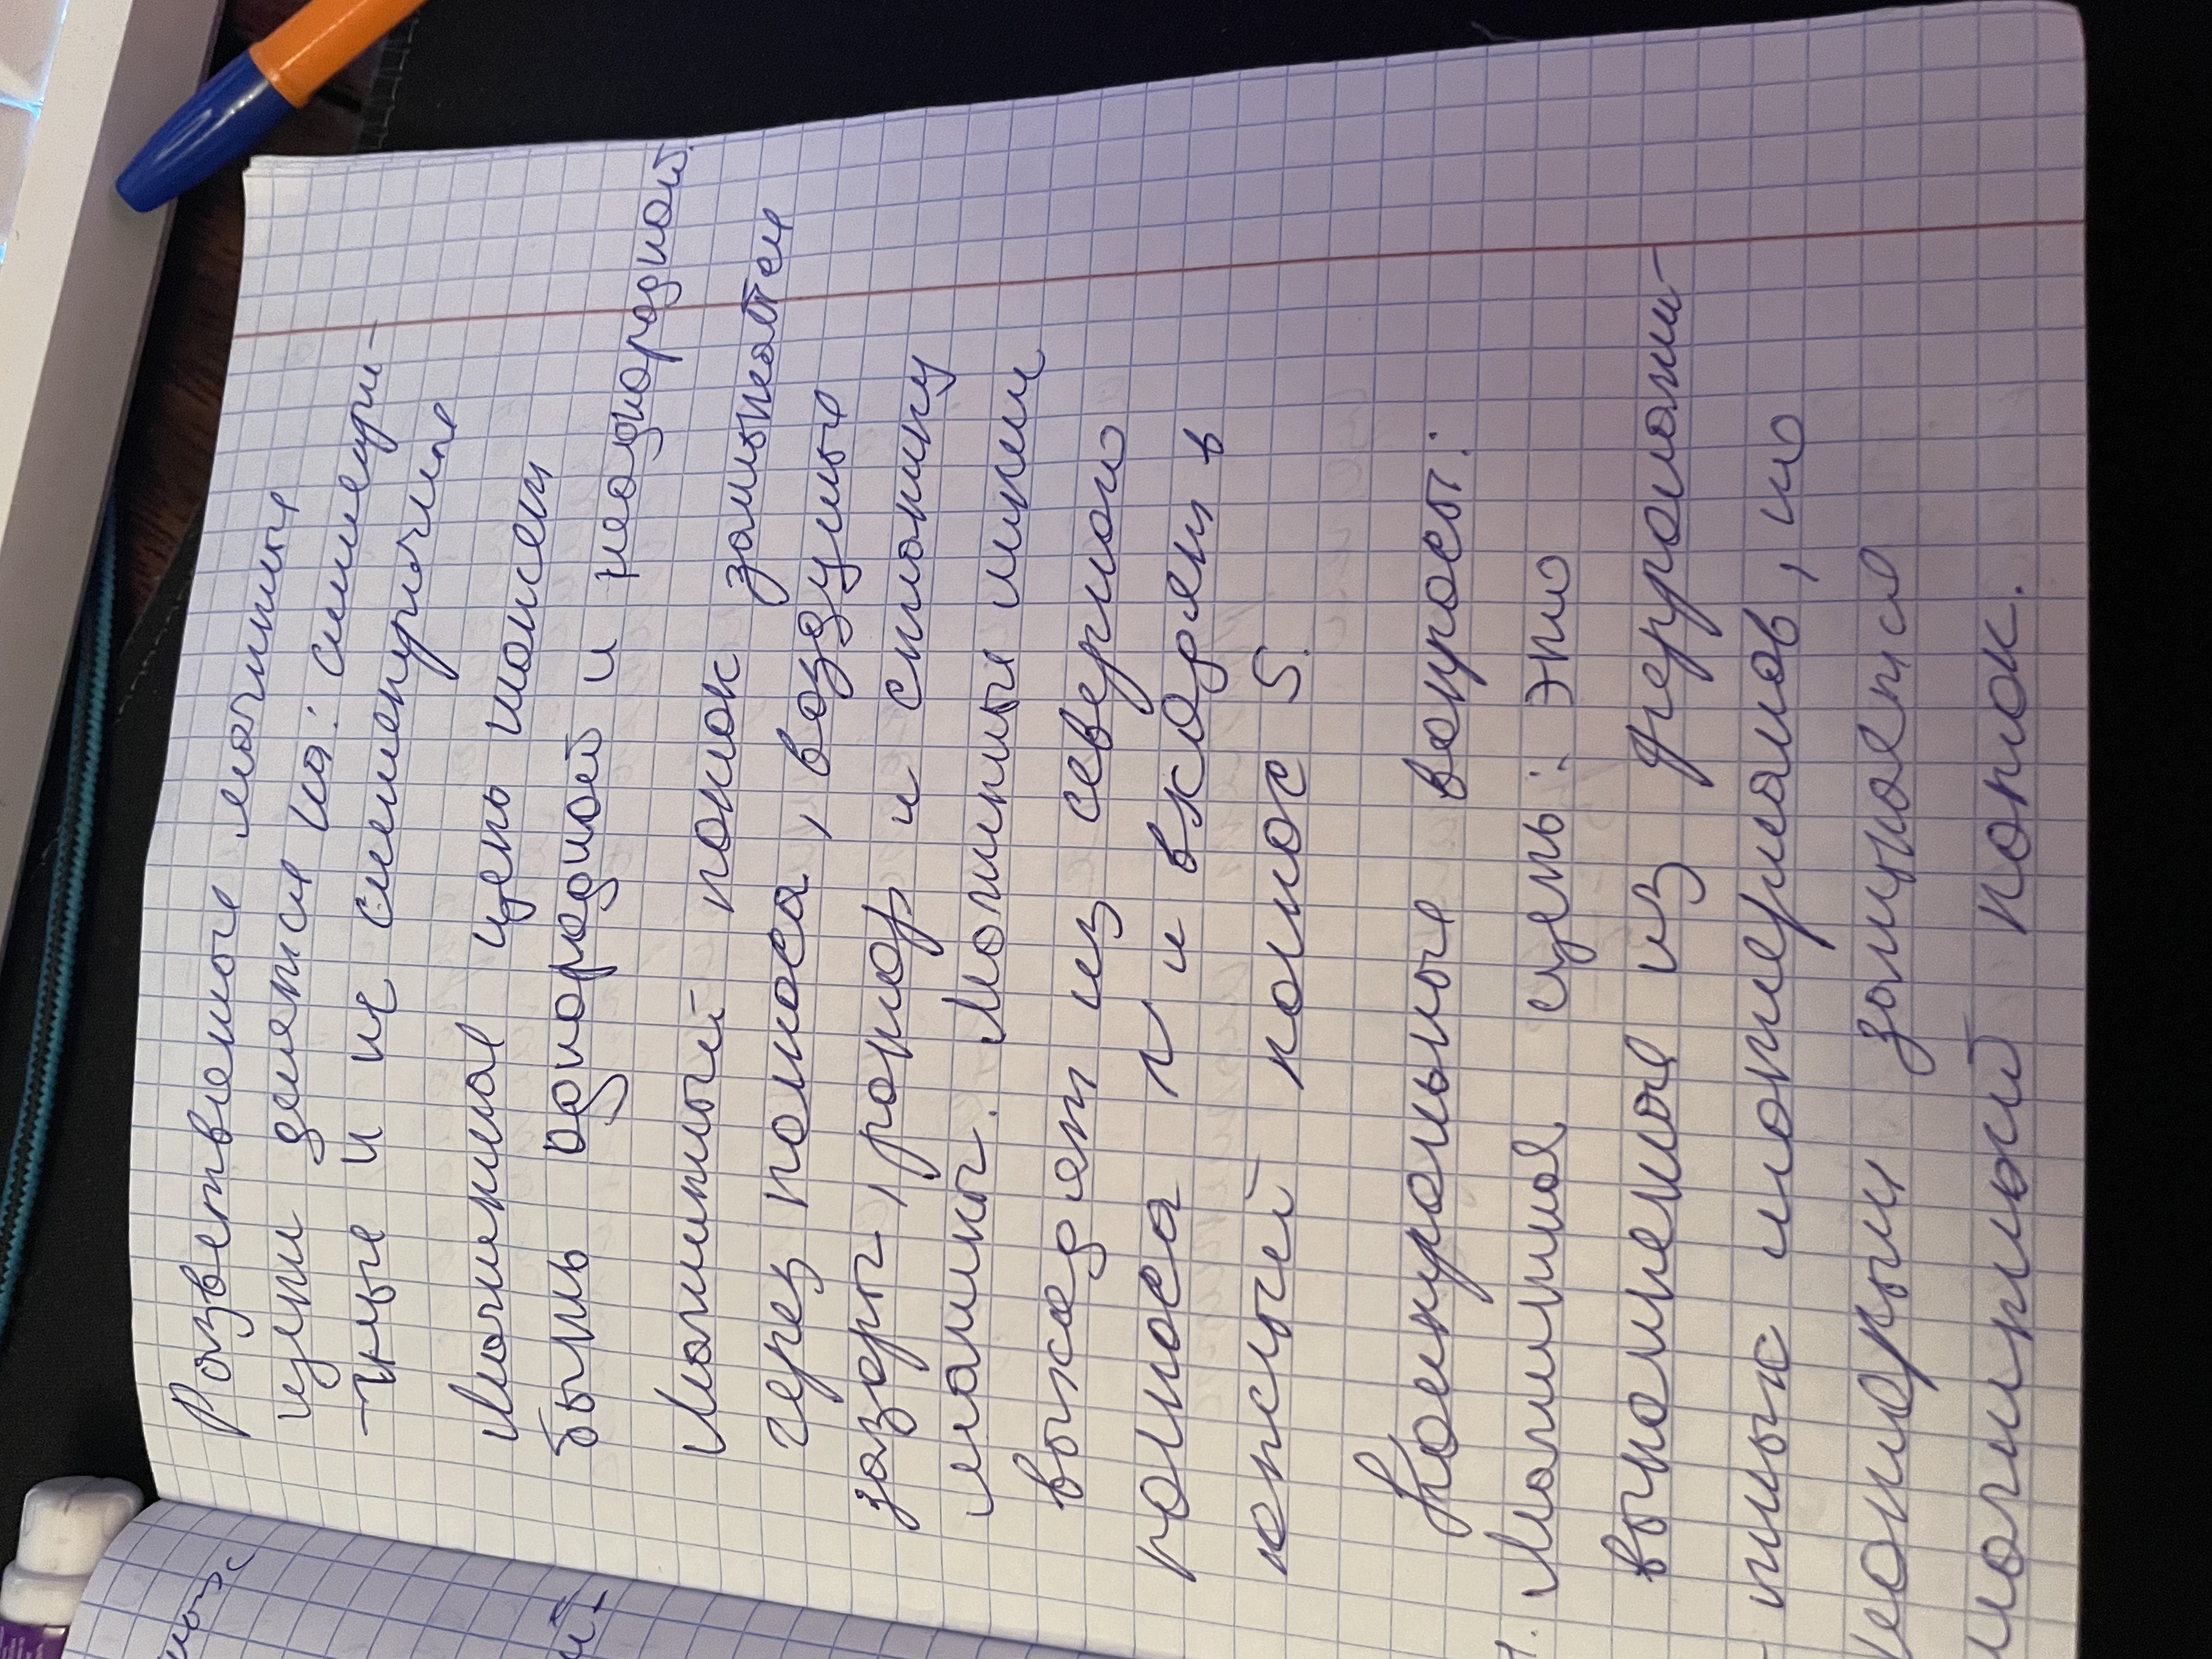 Розветвленые магнитные
цепи делятся на: симметри-
-тные и не симметричные
Магнитная цепь может
быть однородной и неоднородной.
Магнитный поток замыкается
через полюса, воздушные
зазоры, ротор и спинку
магнит. Магнитные линии
выходят из северного
полюса N и входят в
южный полюс S.
Контрольные вопросы:
1. Магнитная цепь: это
выполненное из ферромагни-
тных материалов, по
которым замыкается
магнитный поток.